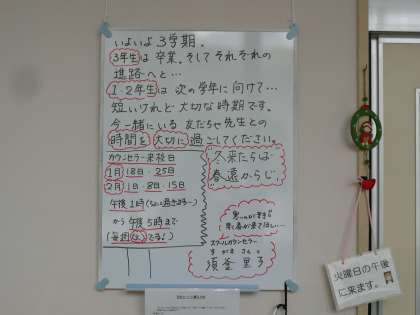 いよいよ3学期。
3年生は卒業。そしてそれぞれの
進路へと…
1・2年生は次の学年に向けて…
短いけれど大切な時期です。
今一緒にいる友だちや先生との
時間を大切に過ごしてください。
カウンセラー来校日
1月18日・25日
2月1日・8日・15日
午後1時
から午後5時まで
(毎週火です!)
冬来たらば
春遠からじ
早く春が来てほしい…
スクールカウンセラー
須釜里子
火曜日の午後
に来ます。